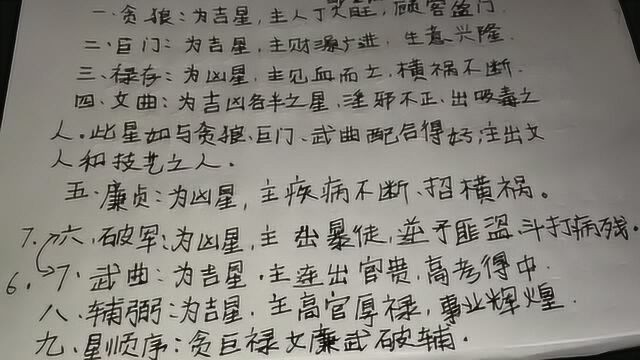 一、贪狼：为吉星，主人丁兴旺，顾客盈门
二、巨门：为吉星，主财源广进，生意兴隆
三、禄存：为凶星，主见血而亡，横祸不断.
四、文曲：为吉凶各半之星，淫邪不正，出吸毒之
人。此星如与贪狼、巨门、武曲配合得好，主出文
人和技艺之人。
五、廉贞：为凶星，主疾病不断、招横祸。
7. 六、破军：为凶星，主出暴徒，逆子匪盗、斗打病残.
6. 7、武曲：为吉星，主连出官贵，高考得中.
八、辅弼：为吉星，主高官厚禄，事业辉煌.
九、星顺序：贪巨禄文廉武破辅.